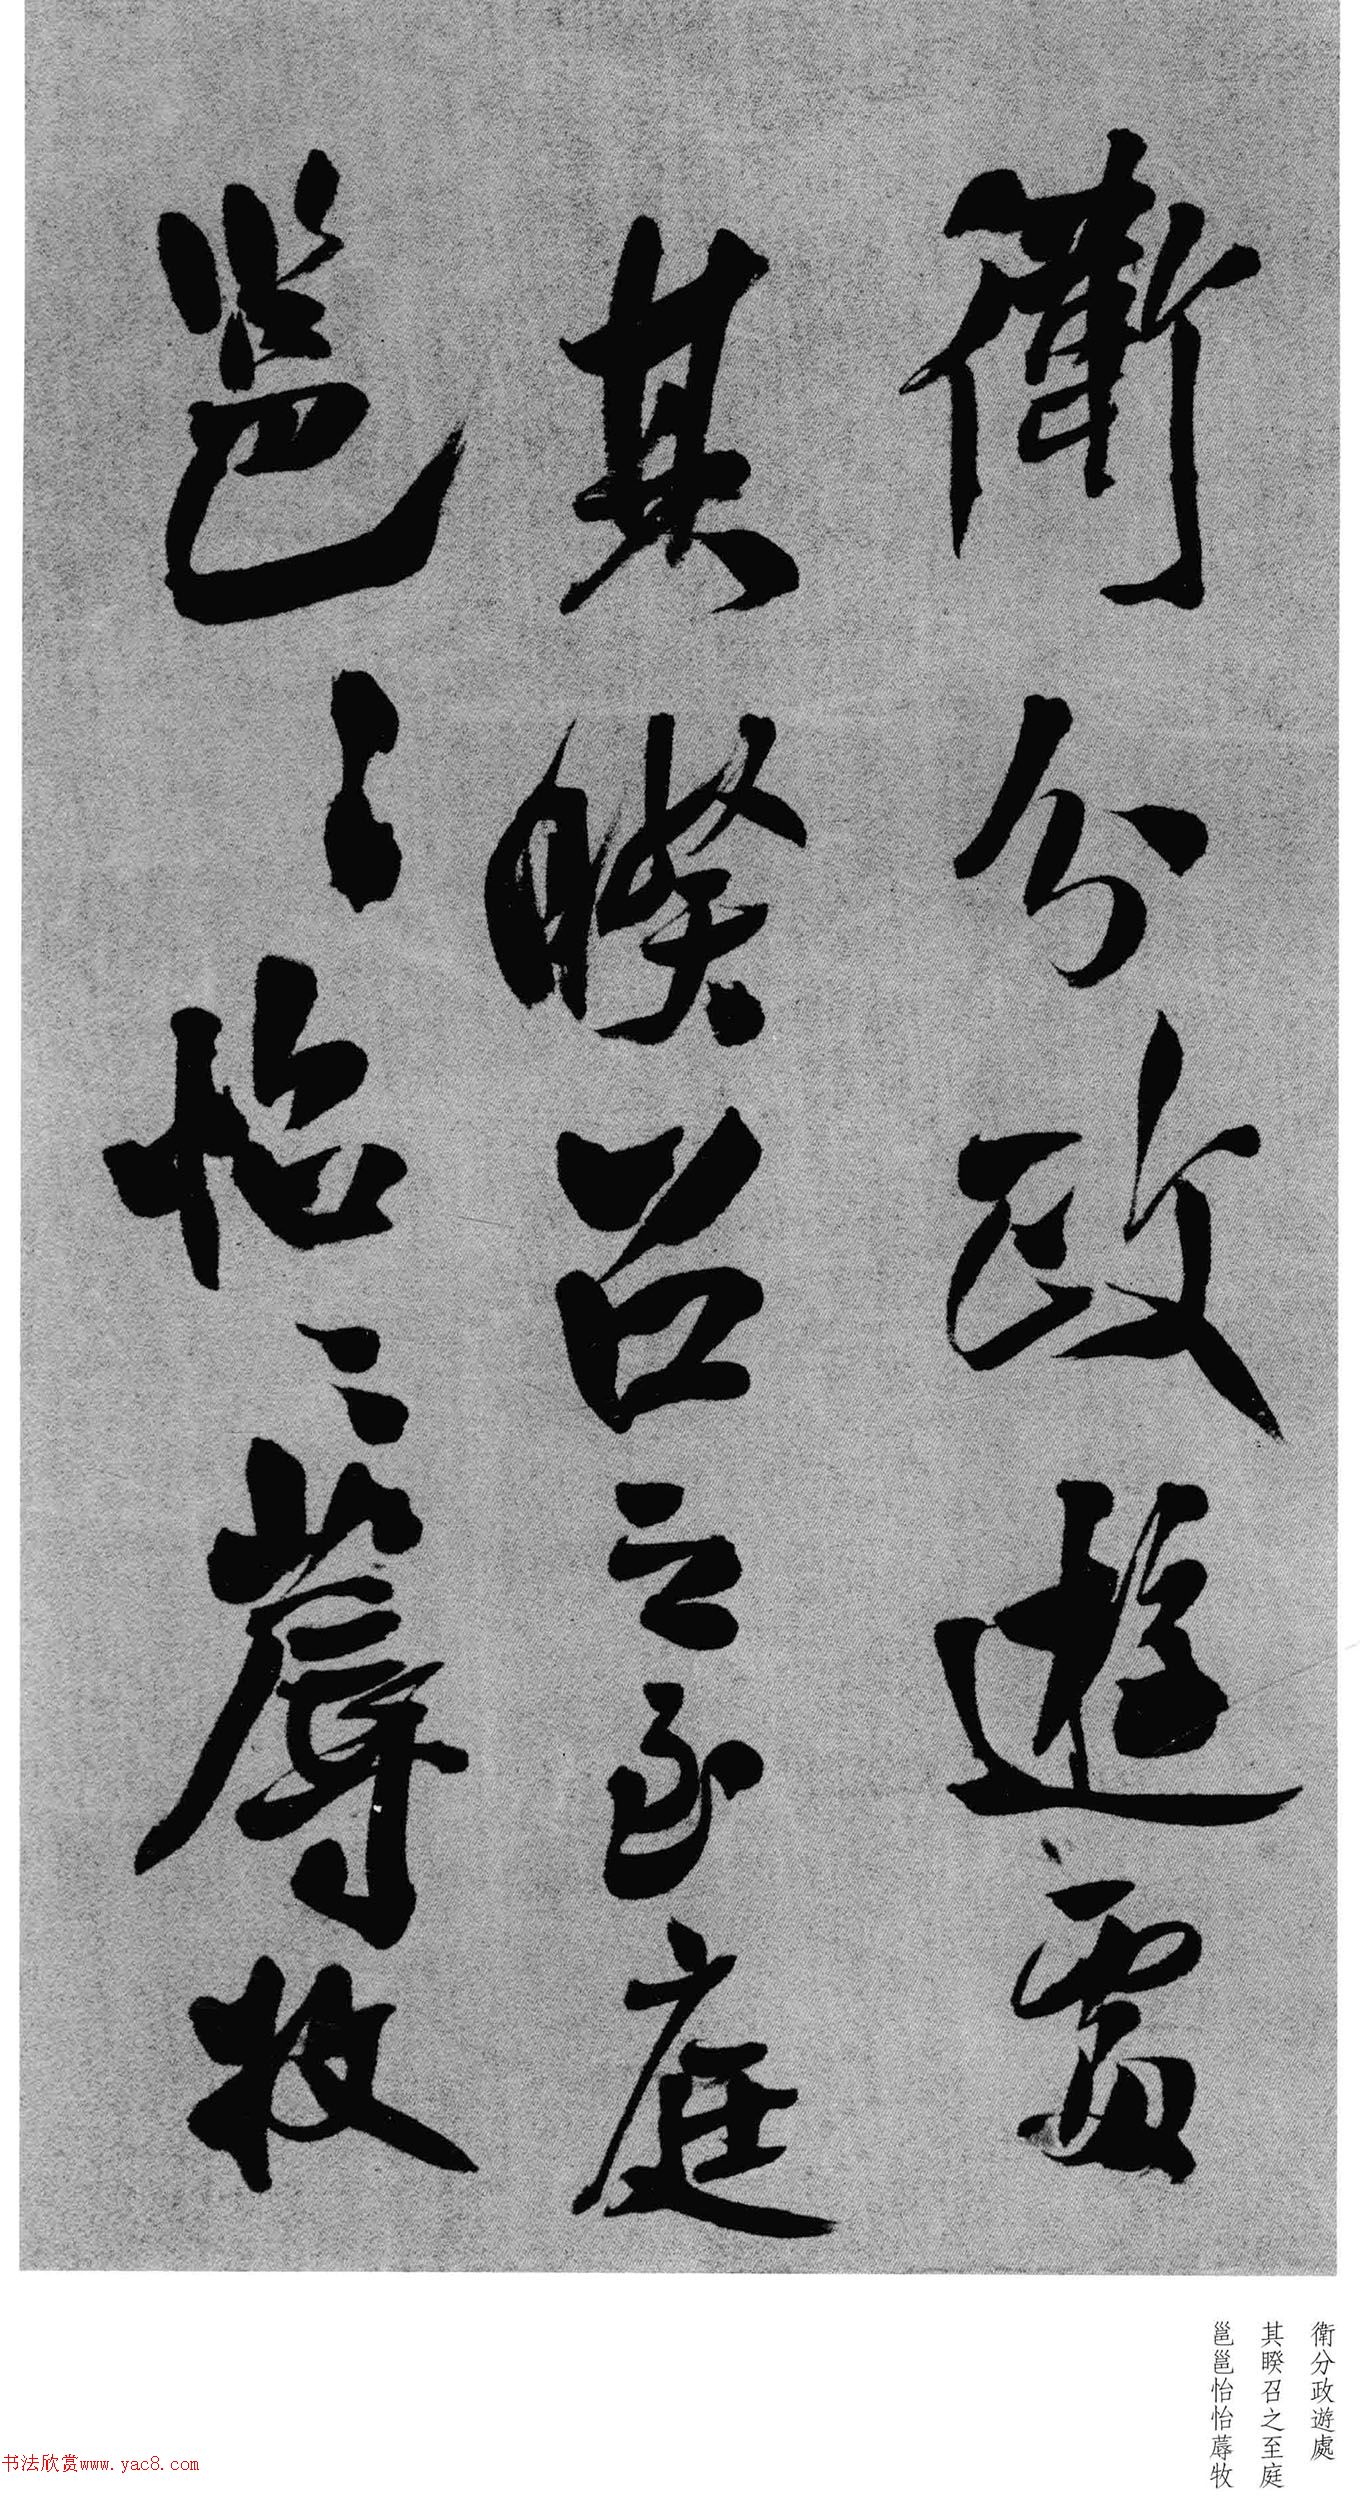 衛分政遊處
其暌召之至庭
邕〻怡〻蓐牧
衛分政遊處
其暌召之至庭
邕邕怡怡蓐牧
书法欣赏www.yac8.com